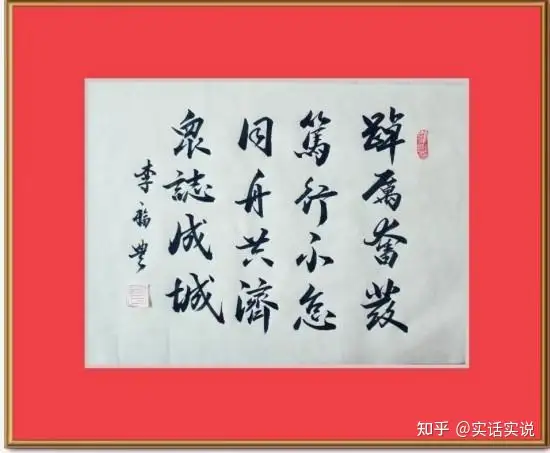 踔厲奮發
篤行不怠
同舟共濟
衆誌成城
李福豐
知乎 @实话实说